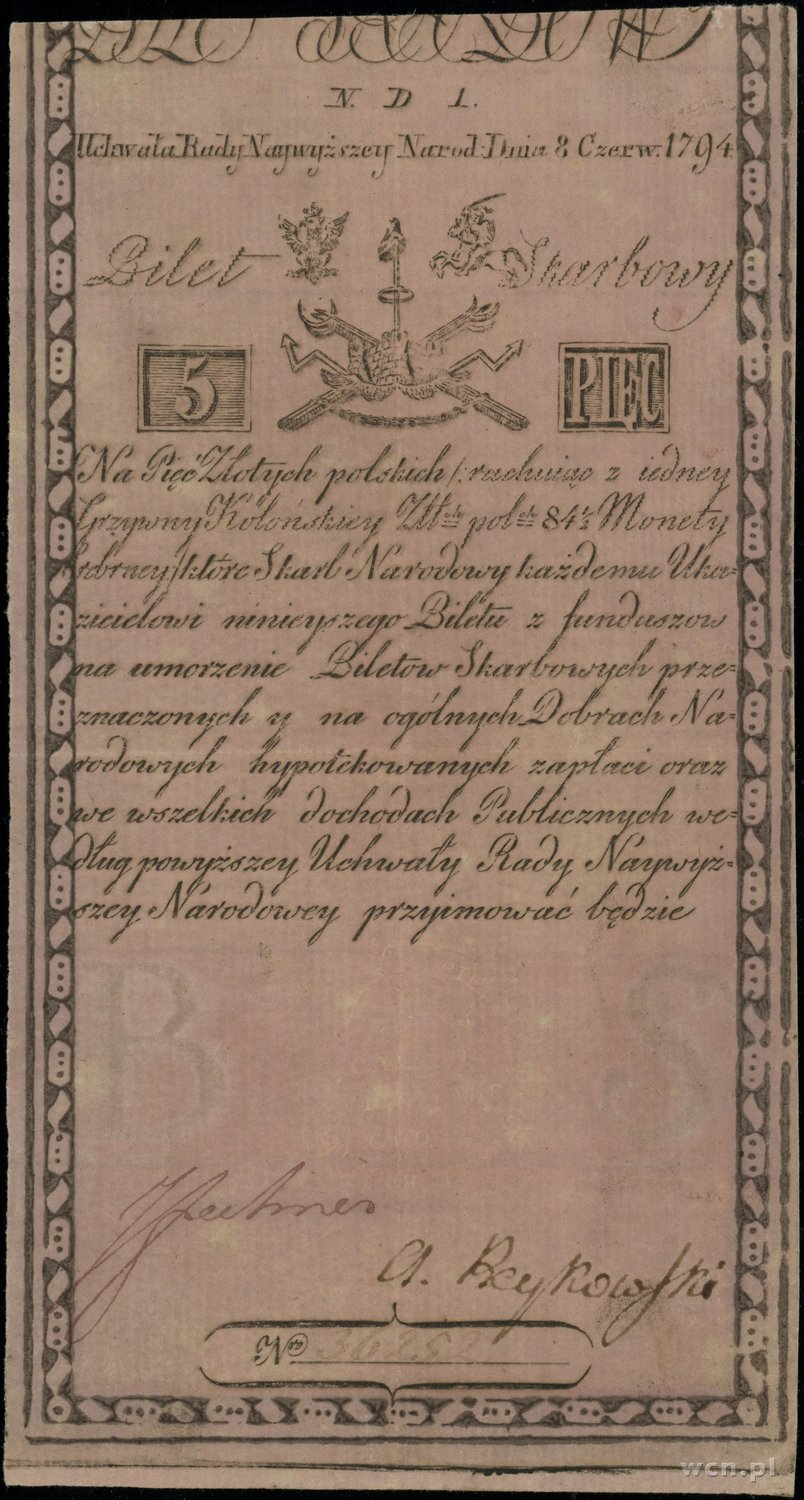 N. D 1.
Uchwała Rady Naywyższey Narod: Dnia 8 Czerw. 1794
Bilet Skarbowy
5 PIĘC
Na Pięć Złotych polskich /: rachuiąc z iedney
Grzywny Kolońskiey Złł: pol: 84½ Monety
srebrney / które Skarb Narodowy każdemu Uka-
zicielowi ninieyszego Biletu z funduszow
na umorzenie Biletow Skarbowych prze-
znaczonych y na ogólnych Dobrach Na-
rodowych hypotékowanych zapłaci oraz
we wszelkich dochodach Publicznych we-
dług powyższey Uchwały Rady Naywyż-
szey Narodowey przyimować będzie
B S
A. Reykowski
Nro 36252
wcn.pl